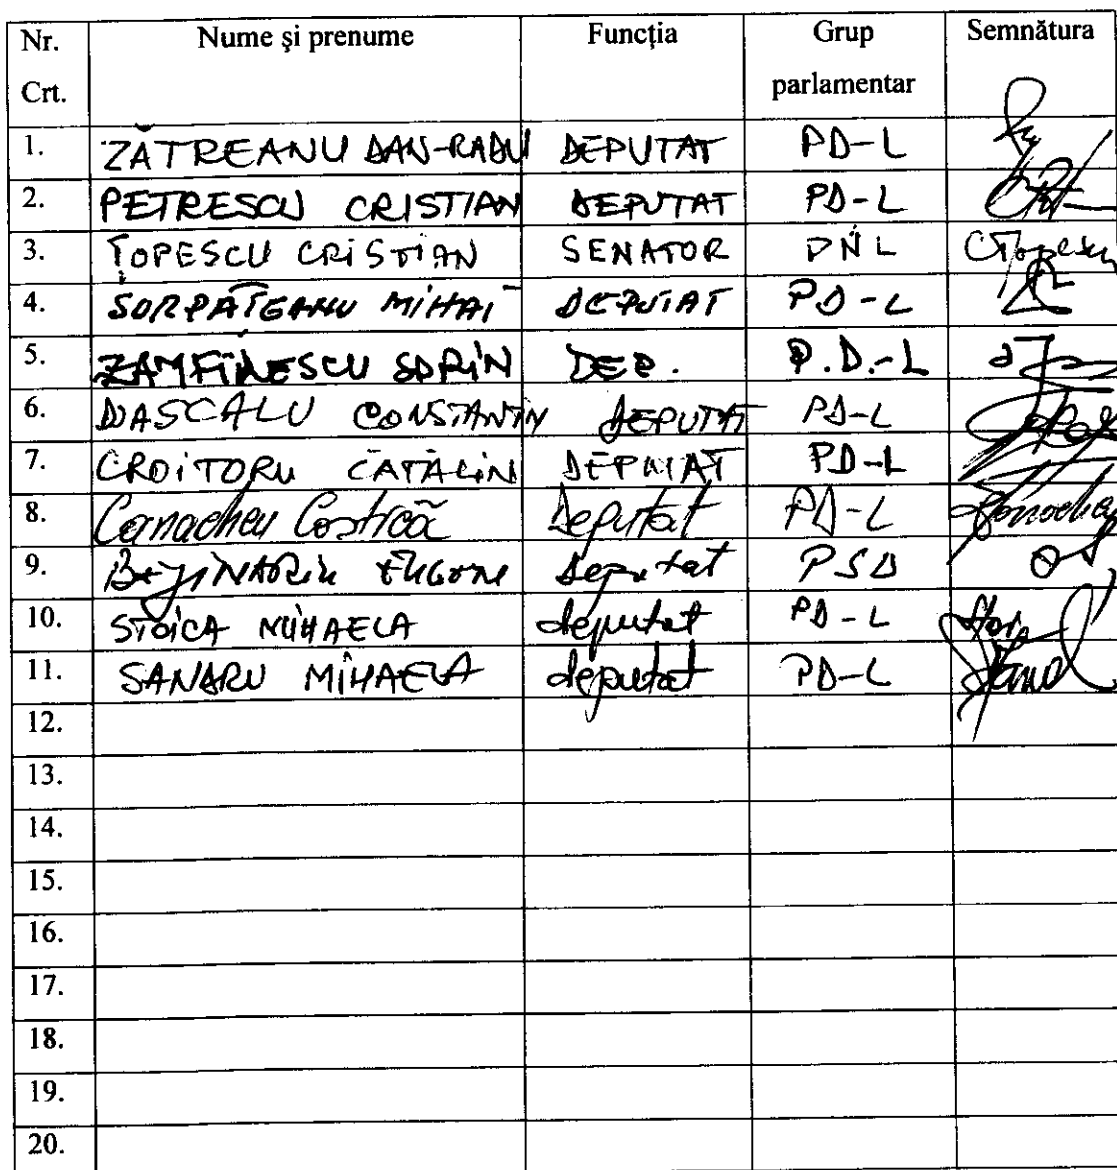 Nr. Crt. Nume și prenume Funcția Grup parlamentar Semnătura
1. ZĂTREANU DAN-RADU DEPUTAT PD-L
2. PETRESCU CRISTIAN DEPUTAT PD-L
3. ȚOPESCU CRISTIAN SENATOR PNL CȚopescu
4. SURPĂȚEANU MIHAI DEPUTAT PD-L
5. ZAMFIRESCU SORIN DEP. P.D.-L
6. DASCALU CONSTANTIN DEPUTAT PD-L
7. CROITORU CATALIN DEPUTAT PD-L
8. Canacheu Costică Deputat PD-L
9. Bejinariu Eugene Deputat PSD
10. STOICA MIHAELA deputat PD-L
11. SANDRU MIHAELA deputat PD-L
12.
13.
14.
15.
16.
17.
18.
19.
20.